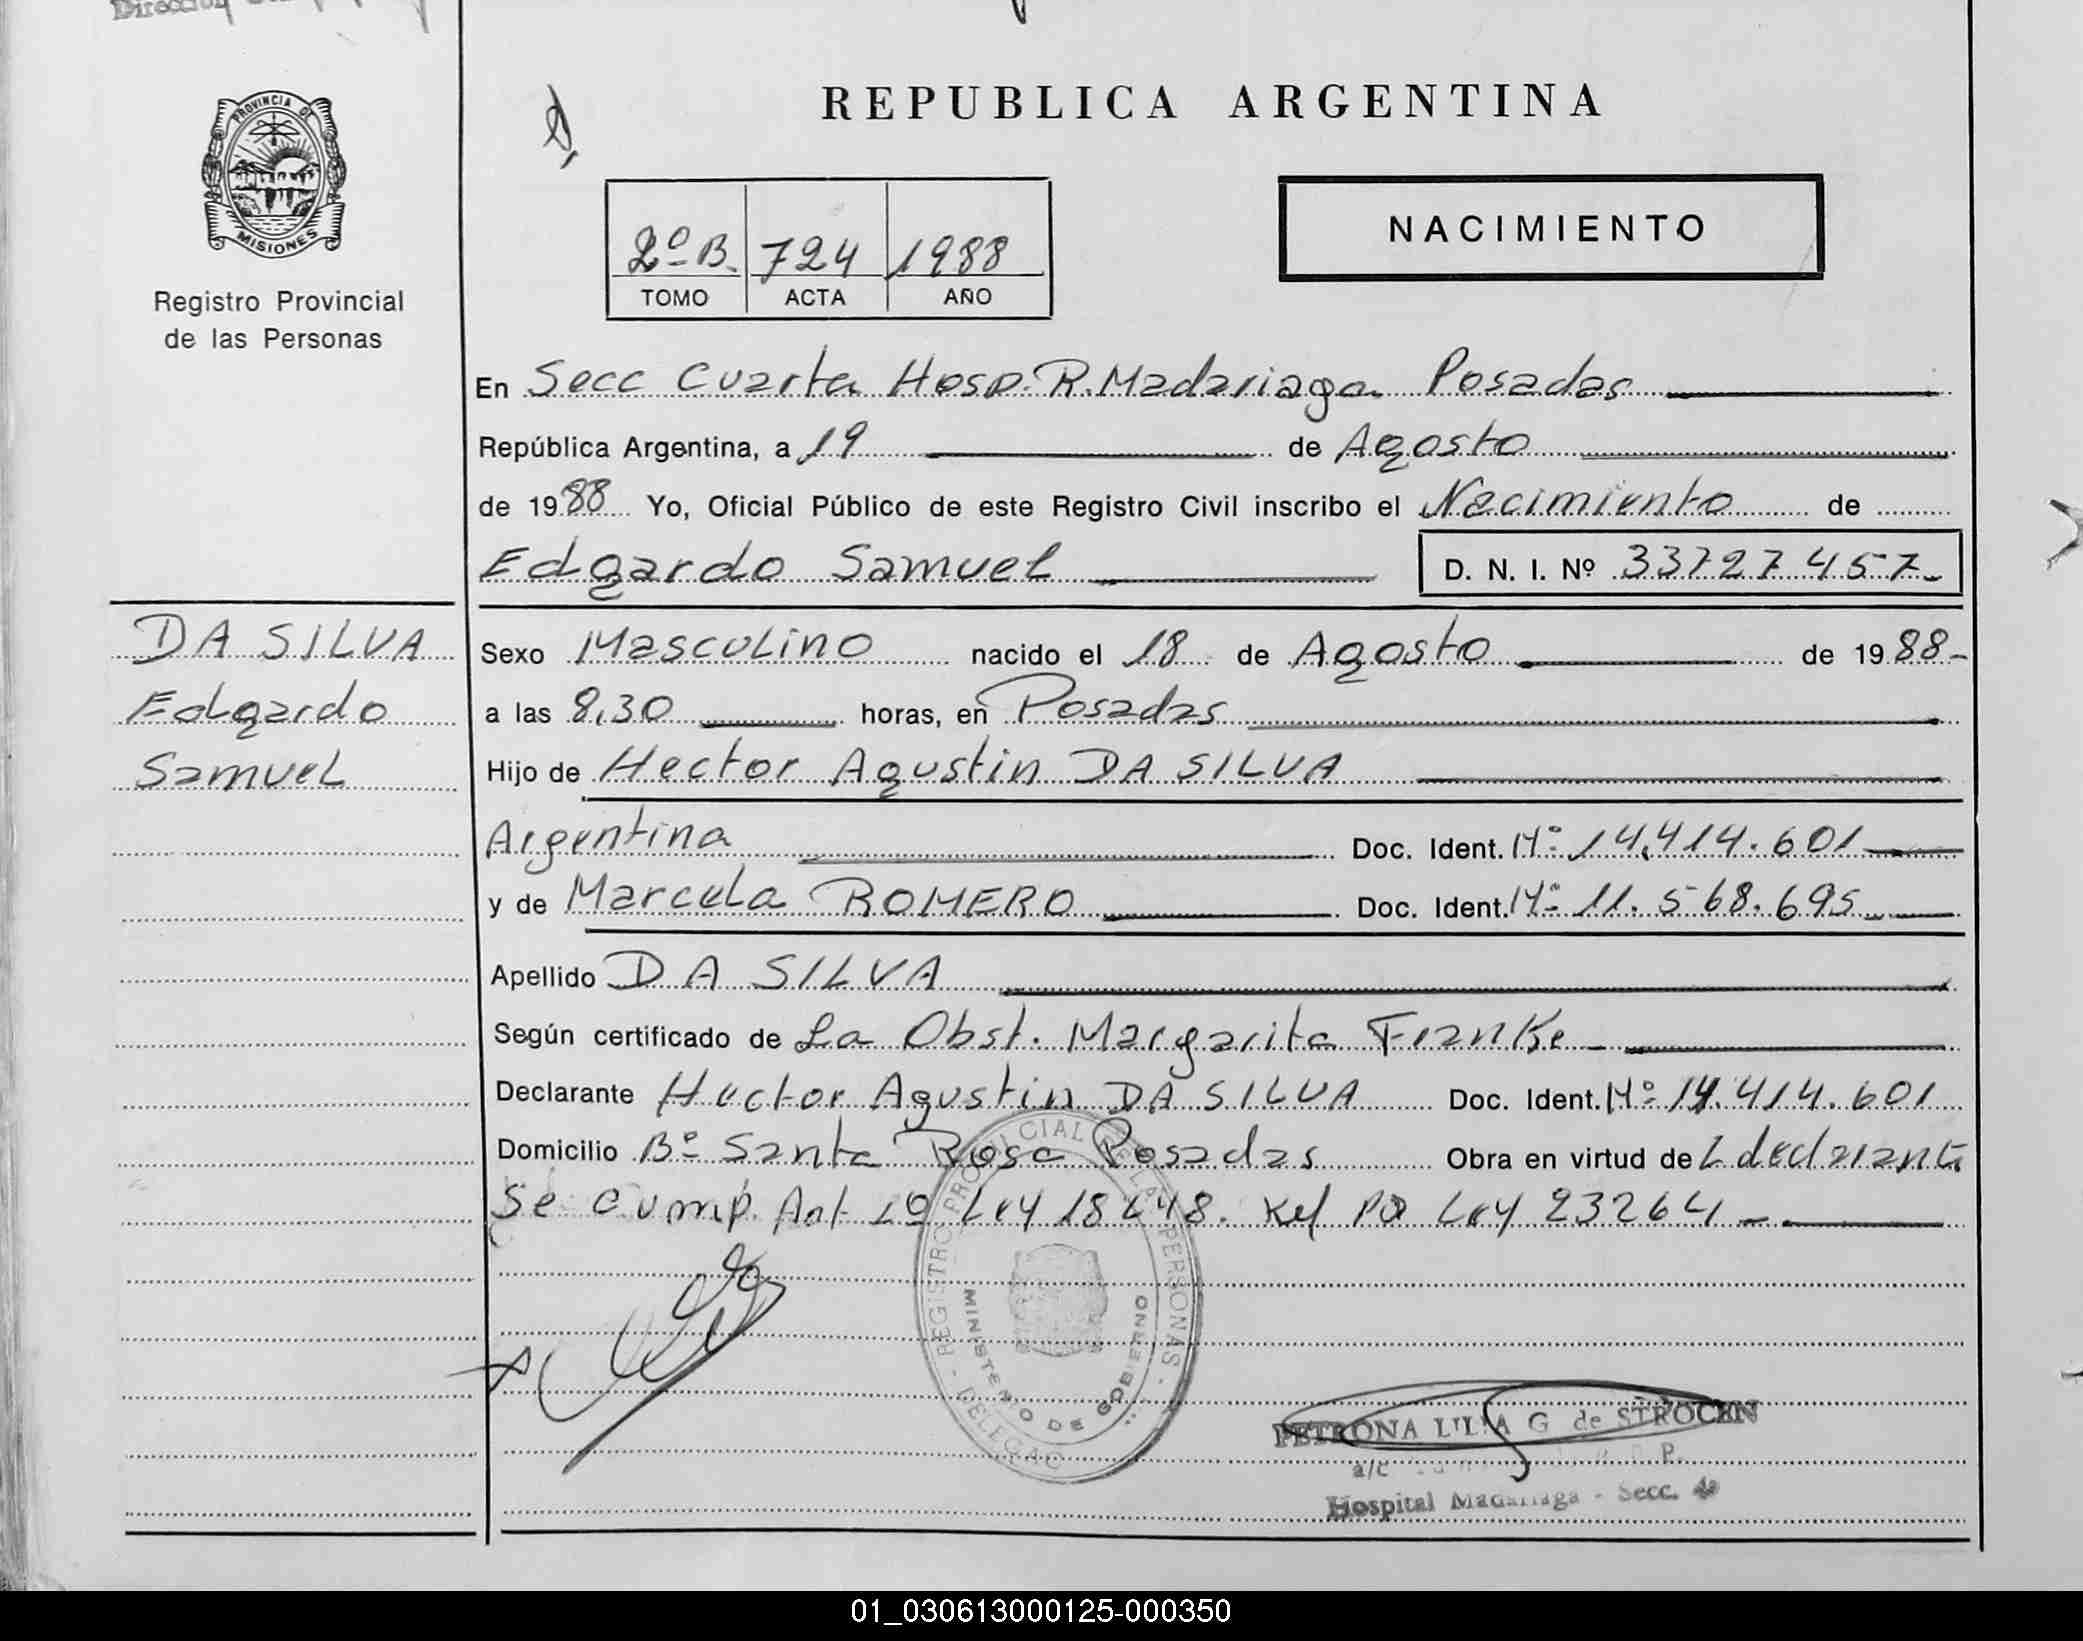 Dirección
PROVINCIA DE
MISIONES
Registro Provincial
de las Personas
REPUBLICA ARGENTINA
2º B. 724 1988
TOMO ACTA AÑO
NACIMIENTO
En Secc Cuarta Hosp. R. Madariaga Posadas
República Argentina, a 19 de Agosto
de 1988 Yo, Oficial Público de este Registro Civil inscribo el Nacimiento de
Edgardo Samuel D. N. I. Nº 33727457.-
DA SILVA
Edgardo
Samuel
Sexo Masculino nacido el 18 de Agosto de 1988-
a las 8,30 horas, en Posadas
Hijo de Hector Agustin DA SILVA
Argentina Doc. Ident. Nº 14.414.601
y de Marcela ROMERO Doc. Ident. Nº 11.568.695
Apellido DA SILVA
Según certificado de La Obst. Margarita Franke
Declarante Hector Agustin DA SILVA Doc. Ident. Nº 14.414.601
Domicilio Bº Santa Rosa Posadas Obra en virtud de L declarante
Se Cump. Art 1º Ley 18248. Ley 23264
REGISTRO PROVINCIAL DE LAS PERSONAS
MINISTERIO DE GOBIERNO
PETRONA LILIA G de STROCEN
a/c
Hospital Madariaga - Secc. 4a
01_030613000125-000350